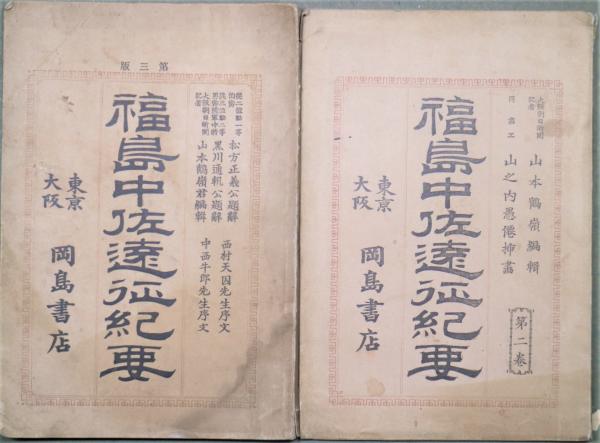 第三版
従二位勲一等伯爵 松方正義公題辞
黒川通軌公題辞
大阪朝日新聞記者 山本鶴嶺君編輯
西村天囚先生序文
中西牛郎先生序文
福島中佐遠征紀要
東京
大阪
岡島書店
大阪朝日新聞記者 山本鶴嶺編輯
山之内愚僊挿畵
福島中佐遠征紀要
第二巻
東京
大阪
岡島書店